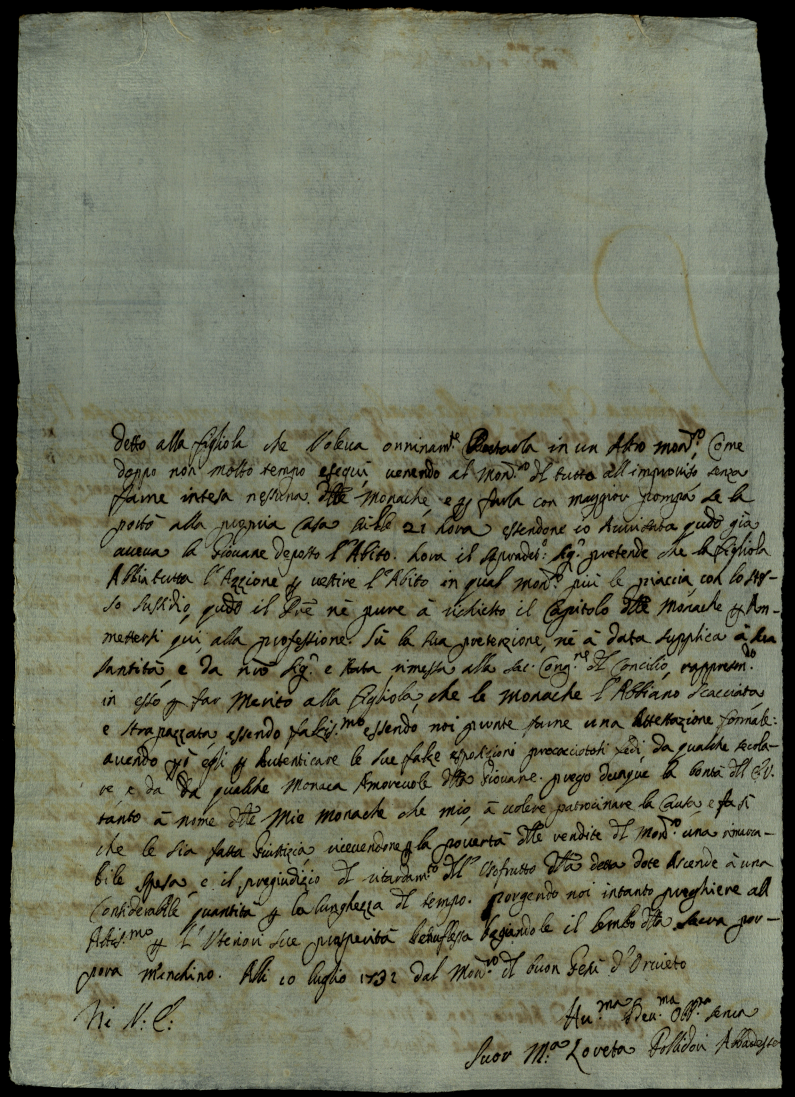 detto alla figliola che Voleva onninam.te Portarla in un Altro mon.ro, Come
doppo non molto tempo eseguì, venendo al Mon.ro dl tutto all'improviso senza
farne intesa nessuna dlle Monache, e p farla con maggior pompa se la
portò alla propria Casa sulle 21 hora essendone io Avvisata qudo già
aveva la Giovane deposto l'Abito. hora il sopradet.o Sig.r pretende che la figliola
Abbia tutta l'Azzione p vestire l'Abito in qual mon.ro più le piaccia, con lo stes-
so sussidio, qudo il Pre nè pure à richiesto il Capitolo dlle Monache p Am-
mettersi qui alla professione. Sù la sua pretenzione, nè à data supplica à sua
santità, e da nro Sig.r e stata rimessa alla Sac. Cong.ne dl Concilio, rappresen.do
in esso p far Merito alla figliola, che le Monache l'Abbiano scacciata,
e strapazzata, essendo falsis.mo essendo noi pronte farne una Attestazione formale:
avendo pò egli p Autenticare le sue false esposizioni procacciatosi fedi, da qualche secola-
re, e da qualche Monaca Amorevole dlla Giovane. prego dunque la bontà dll' E.V.
tanto à nome dlle Mie Monache che mio, à volere patrocinare la Causa, e fa sì
che le sia fatta Giustizia, ricevendone p la povertà dlle rendite dl Mon.ro una rimarca-
bile spesa, e il pregiudizio dl ritardam.to dll' Usofrutto dlla detta dote Ascende à una
Considerabile quantità p la lunghezza dl tempo. porgendo noi intanto preghiere all
Altis.mo p l'Ulteriori sue prosperità genuflessa bagiandole il lembo dlla sacra por-
pora M'inchino. Alli 10 luglio 1732 dal Mon.ro dl buon Gesù d'Orvieto
Di V. E.
Hu.ma Dev.ma Obb.ma serva
Suor M.a Loreta Pollidori Abbadessa